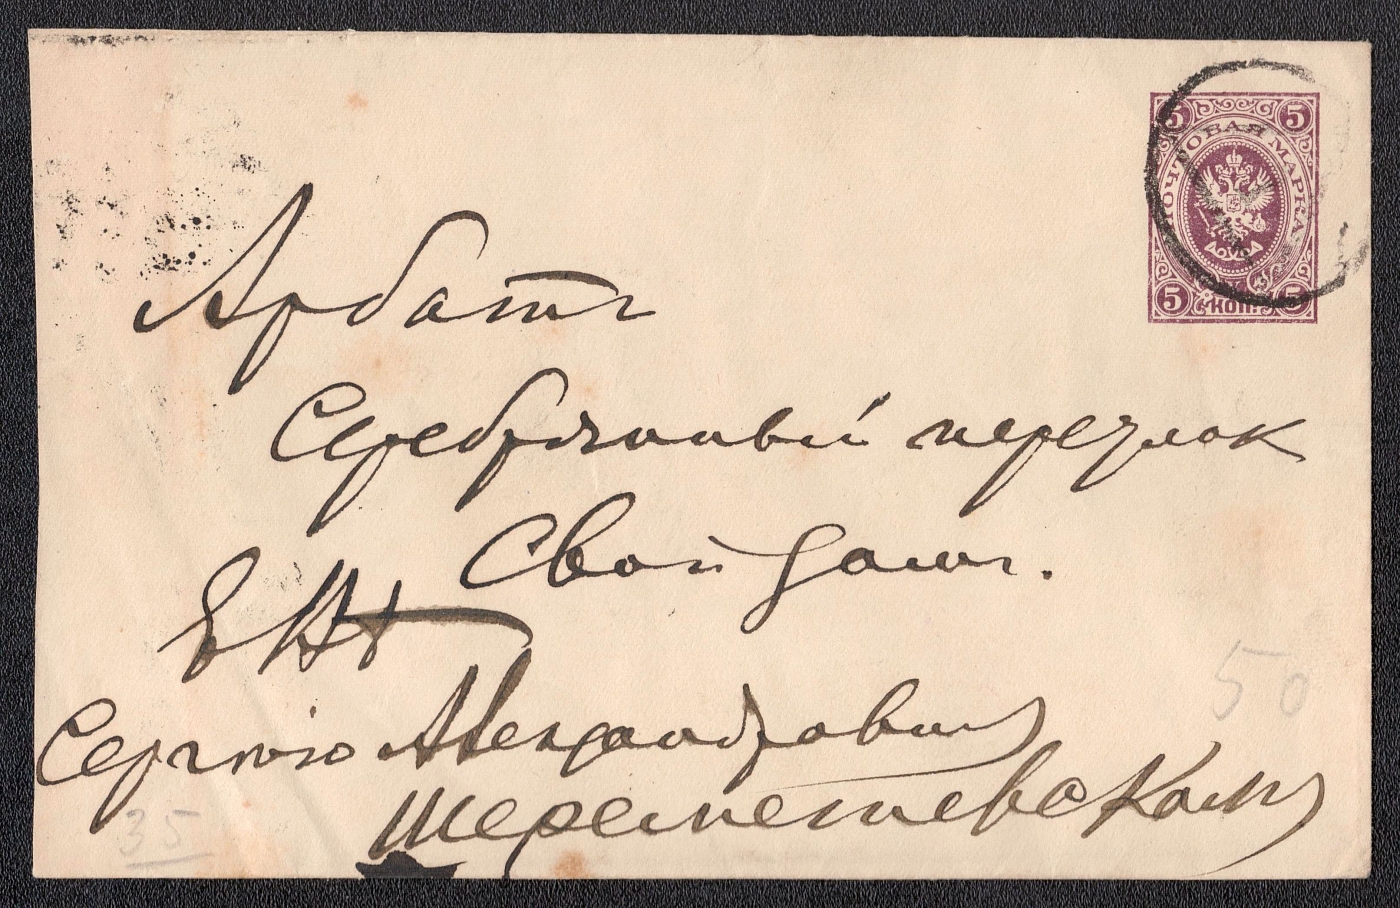 5 5
ПОЧТОВАЯ МАРКА
5 КОП. 5
Арбатъ
Серебрянный переулок
Свой домъ.
ЕВ
Сергѣю Александровичу
Шереметевскому
50
35